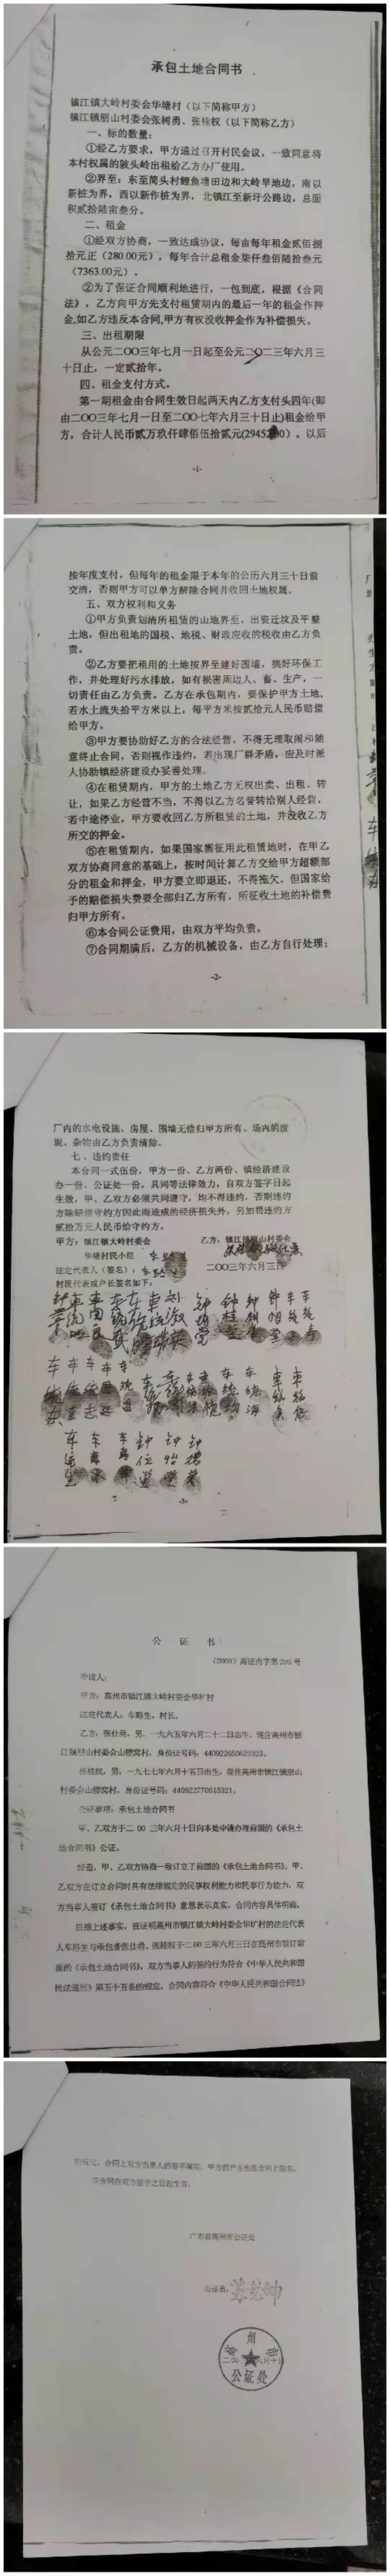 承包土地合同书
镇江镇大岭村委会华塘村（以下简称甲方）
镇江镇朋山村委会张树勇、张桂权（以下简称乙方）
一、标的数量：
①经乙方要求，甲方通过召开村民会议，一致同意将
本村权属的陂头岭出租给乙方办厂使用。
②界至：东至简头村鲤鱼塘田边和大岭旱地边，南以
新桩为界，西以新作桩为界，北镇江至新圩公路边，总面
积贰拾陆亩叁分。
二、租金
①经双方协商，一致达成协议，每亩每年租金贰佰捌
拾元正（280.00元），每年合计总租金柒仟叁佰陆拾叁元
（7363.00元）。
②为了保证合同顺利地进行，一包到底，根据《合同
法》，乙方向甲方先支付租赁期内的最后一年的租金作押
金,如乙方违反本合同,甲方有权没收押金作为补偿损失。
三、出租期限
从公元二OO三年七月一日起至公元二O二三年六月三
十日止，一定贰拾年。
四、租金支付方式。
第一期租金由合同生效日起两天内乙方支付头四年(即
由二OO三年七月一日至二OO七年六月三十日止)租金给甲
方，合计人民币贰万玖仟肆佰伍拾贰元(2945 00）。以后
-1-
按年度支付，但每年的租金限于本年的公历六月三十日前
交清，否则甲方可以单方解除合同并收回土地权属。
五、双方权利和义务
①甲方负责划清所租赁的山地界至、出资迁坟及平整
土地，但出租地的国税、地税、财政应收的税收由乙方负
责。
②乙方要把租用的土地按界至建好围墙，搞好环保工
作，并处理好污水排放，如有损害周边人、畜、生产，一
切责任由乙方负责。乙方在承包期内，要保护甲方土地，
若水土流失拾平方米以上，每平方米按贰拾元人民币赔偿
给甲方。
③甲方要协助好乙方的合法经营，不得无理取闹和随
意终止合同，否则视作违约，若出现厂群矛盾，应及时派
人协助镇经济建设办妥善处理。
④在租赁期内，甲方的土地乙方无权出卖、出租、转
让，如果乙方经营不当，不得以乙方名誉转给别人经营，
若中途停业，甲方要收回乙方所租赁的土地，并没收乙方
所交的押金。
⑤在租赁期内，如果国家需征用此租赁地时，在甲乙
双方协商同意的基础上，按时间计算乙方交给甲方超额部
分的租金和押金，甲方要立即退还，不得拖欠。但国家给
予的赔偿损失费要全部归乙方所有，所征收土地的补偿费
归甲方所有。
⑥本合同公证费用，由双方平均负责。
⑦合同期满后，乙方的机械设备，由乙方自行处理；
-2-
厂内的水电设施、房屋、围墙无偿归甲方所有。场内的废
坭、杂物由乙方负责清除。
七、违约责任
本合同一式伍份，甲方一份、乙方两份、镇经济建设
办一份、公证处一份，具同等法律效力，自双方签字日起
生效，甲、乙双方必须共同遵守，均不得违约，否则违约
方除赔偿守约方因此而造成的经济损失外，另加罚违约方
贰拾万元人民币给守约方。
甲方：镇江镇大岭村委会 乙方：镇江镇朋山村委会
华塘村民小组
法定代表人（签名）： 二OO三年六月三日
村民代表或户长签名如下：
公 证 书
（2003）高证内字第 号
申请人：
甲方：高州市镇江镇大岭村委会华圹村
法定代表人：车路生，村长。
乙方：张仕勇，男，一九六五年六月二十二日出生，现住高州市镇
江镇朋山村委会山腰窝村，身份证号码：440922650622323。
张桂权，男，一九七七年六月十五日出生，现住高州市镇江镇朋山
村委会山腰窝村，身份证号码：440922770615321。
公证事项：承包土地合同书
甲、乙双方于二OO三年六月十日向本处申请办理前面的《承包土
地合同书》公证。
经查，甲、乙双方协商一致订立了前面的《承包土地合同书》。甲、
乙双方在订立合同时具有法律规定的民事权利能力和民事行为能力，双
方当事人签订《承包土地合同书》意思表示真实，合同内容具体明确。
依据上述事实，兹证明高州市镇江镇大岭村委会华圹村的法定代表
人车路生与承包者张仕勇、张桂权于二OO三年六月三日在高州市签订前
面的《承包土地合同书》，双方当事人的签约行为符合《中华人民共和国
民法通则》第五十五条的规定，合同内容符合《中华人民共和国合同法》
的规定，合同上双方当事人的签字属实，甲方的户主也在合同上签名。
该合同自双方签字之日起生效。
广东省高州市公证处
公证员：
公证处